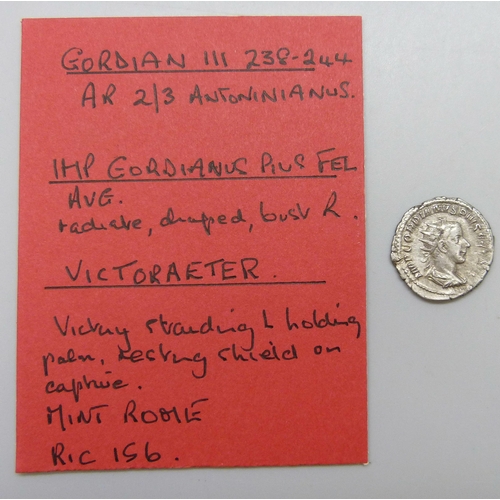 GORDIAN III 238-244
AR 2/3 ANTONINIANUS.
IMP GORDIANUS PIUS FEL
AVG.
radiate, draped, bust R.
VICTORAETER.
Victory standing L holding
palm, resting shield on
captive.
MINT ROME
RIC 156.